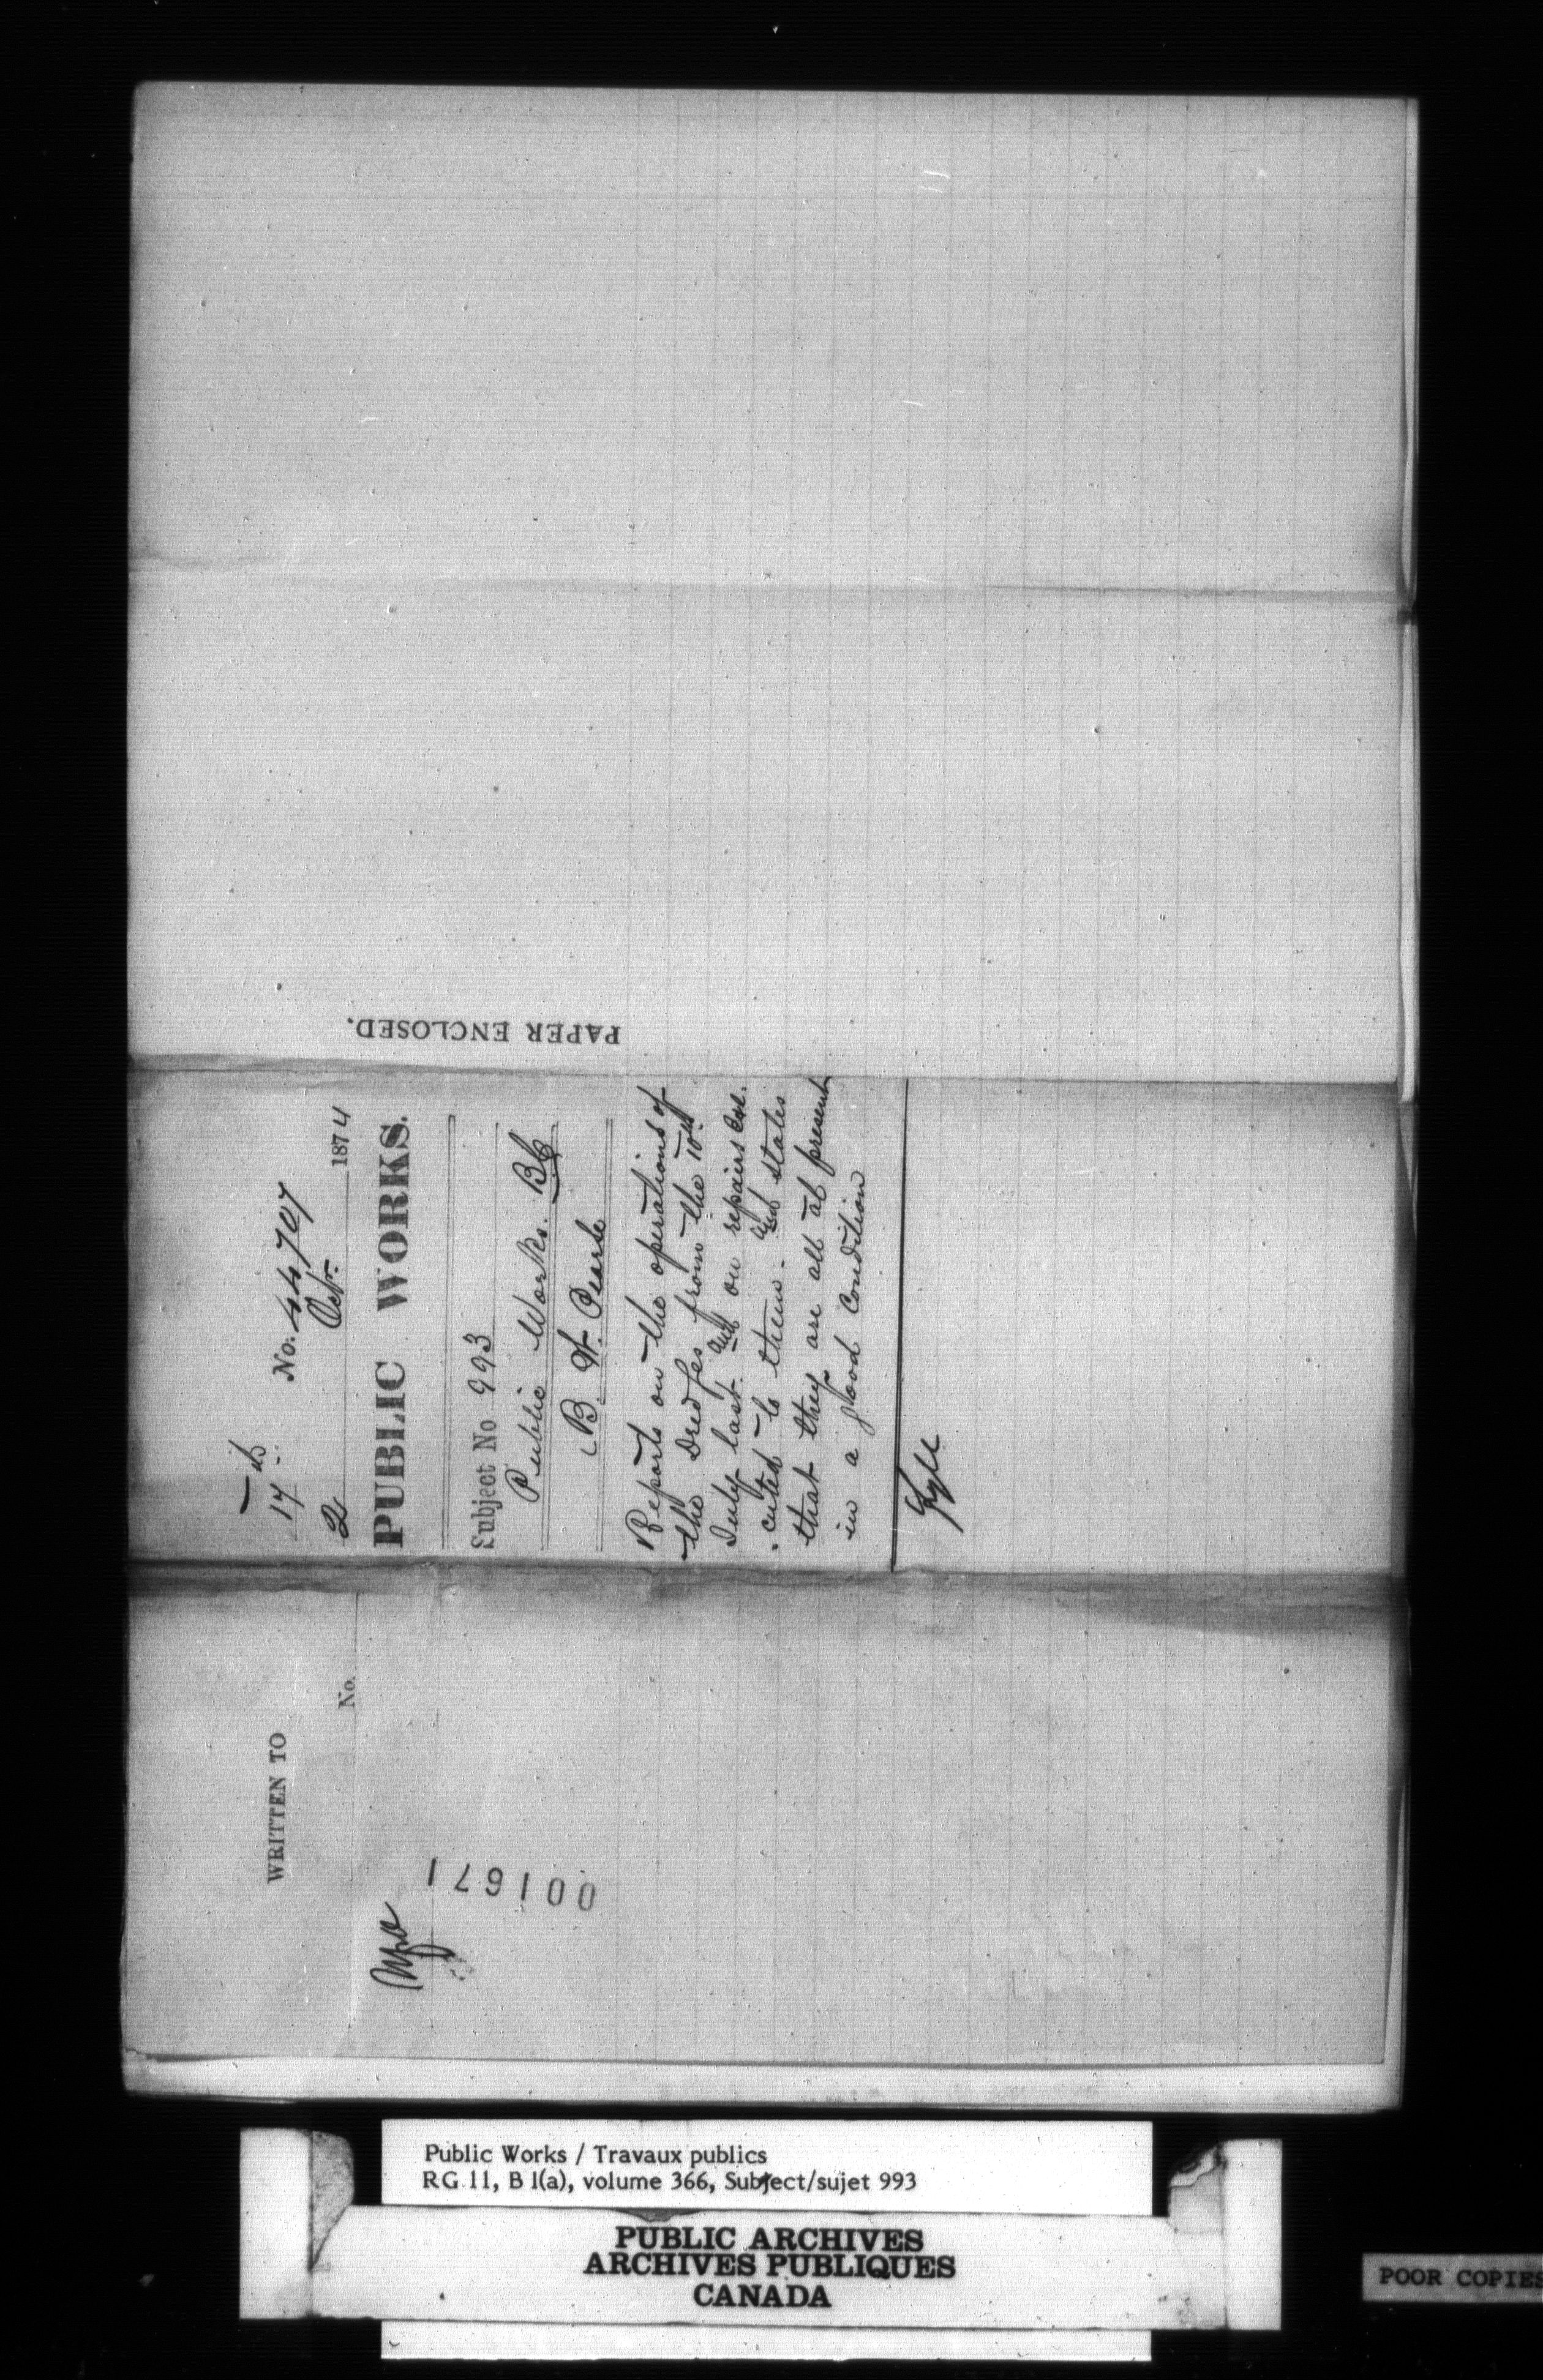 PAPER ENCLOSED.
17th
No. 44,707
2 Octr. 1874
PUBLIC WORKS.
Subject No 993
Public Works. BC
B. W. Pearse
Reports on the operations of
the Dredges from the 10th
July last. and on repairs exe-
-cuted to them. and states
that they are all at present
in a good condition
Fyle
WRITTEN TO
No.
001671
Public Works / Travaux publics
RG 11, B 1(a), volume 366, Subject/sujet 993
PUBLIC ARCHIVES
ARCHIVES PUBLIQUES
CANADA
POOR COPIES